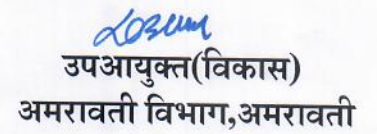 उपआयुक्त(विकास)
अमरावती विभाग,अमरावती